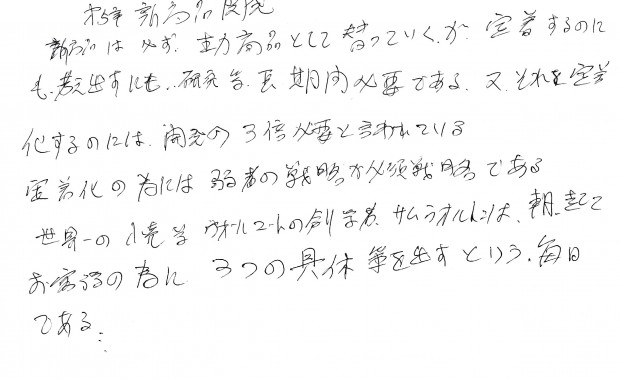 新商品開発
新商品は必ず、主力商品として替っていくが定着するのに
も、考え出すにも、研究等、長期間必要である。又それを定着
化するのには、開発の3倍必要と言われている
定着化の為には弱者の戦略が必須戦略である
世界一の小売業 ウォールマートの創業者、サムウオルトンは、朝、起きて
お客様の為に 3つの具体策を出すという、毎日
である…